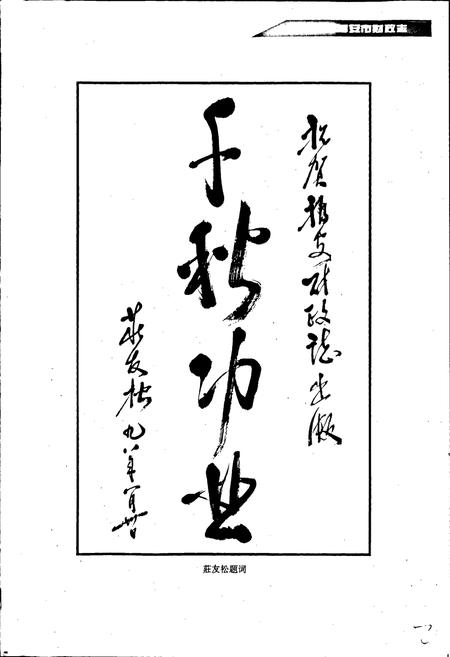 安市财政志
祝贺瑞安财政志出版
千秋功业
莊友松 九八年一月廿日
莊友松题词